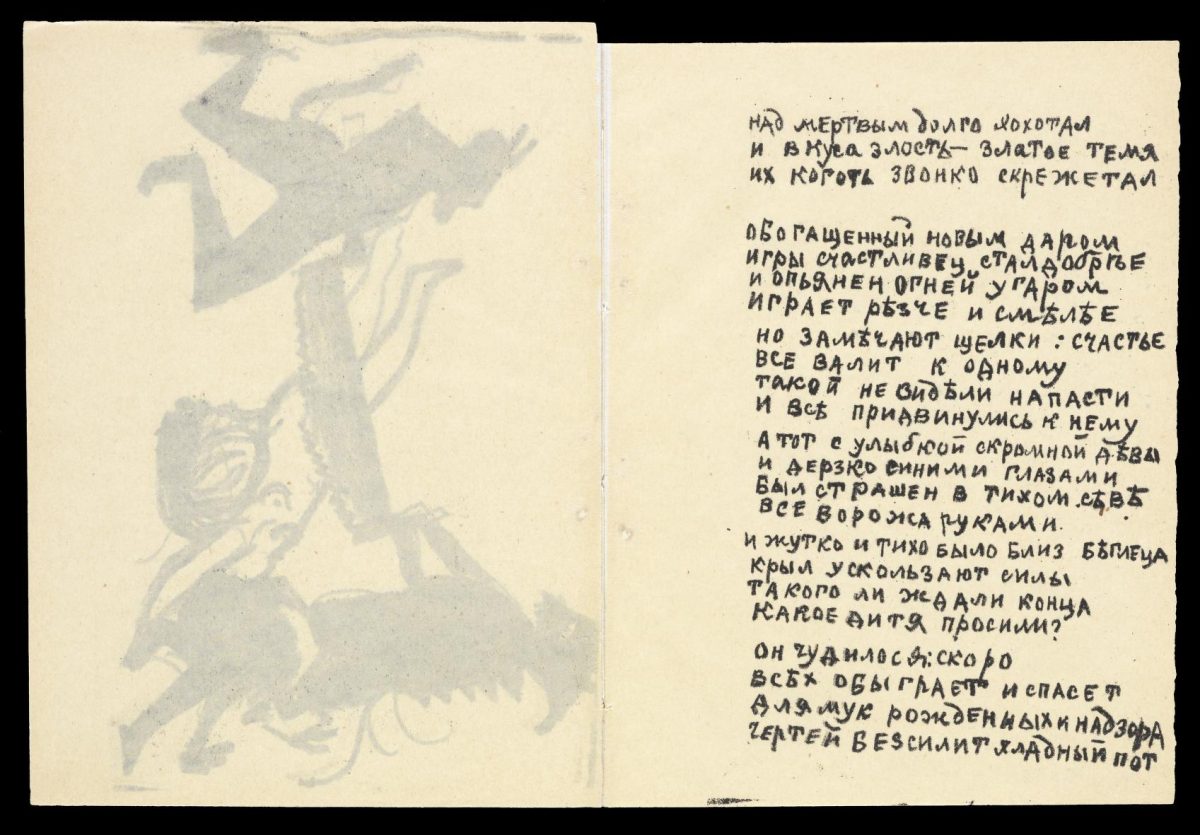 над мертвым долго хохотал
и вкуса злость — златое темя
их коготь звонко скрежетал
обогащенный новым даром
игры счастливец сталдобрѣе
и опьянен огней угаром
играет рѣзче и смѣлѣе
но замѣчают щелки : счастье
все валит к одному
такой не видѣли напасти
и всѣ придвинулись к нему
а тот с улыбкой скромной дѣвы
и дерзко синими глазами
был страшен в тихом сѣвѣ
все ворожа руками.
и жутко и тихо было близ бѣглеца
крыл ускользают силы
такого ли ждали конца
какое дитя просили?
он чудилося: скоро
всѣх обыграет и спасет
для мук рожденных и надзора
чертей безсилит хладный пот